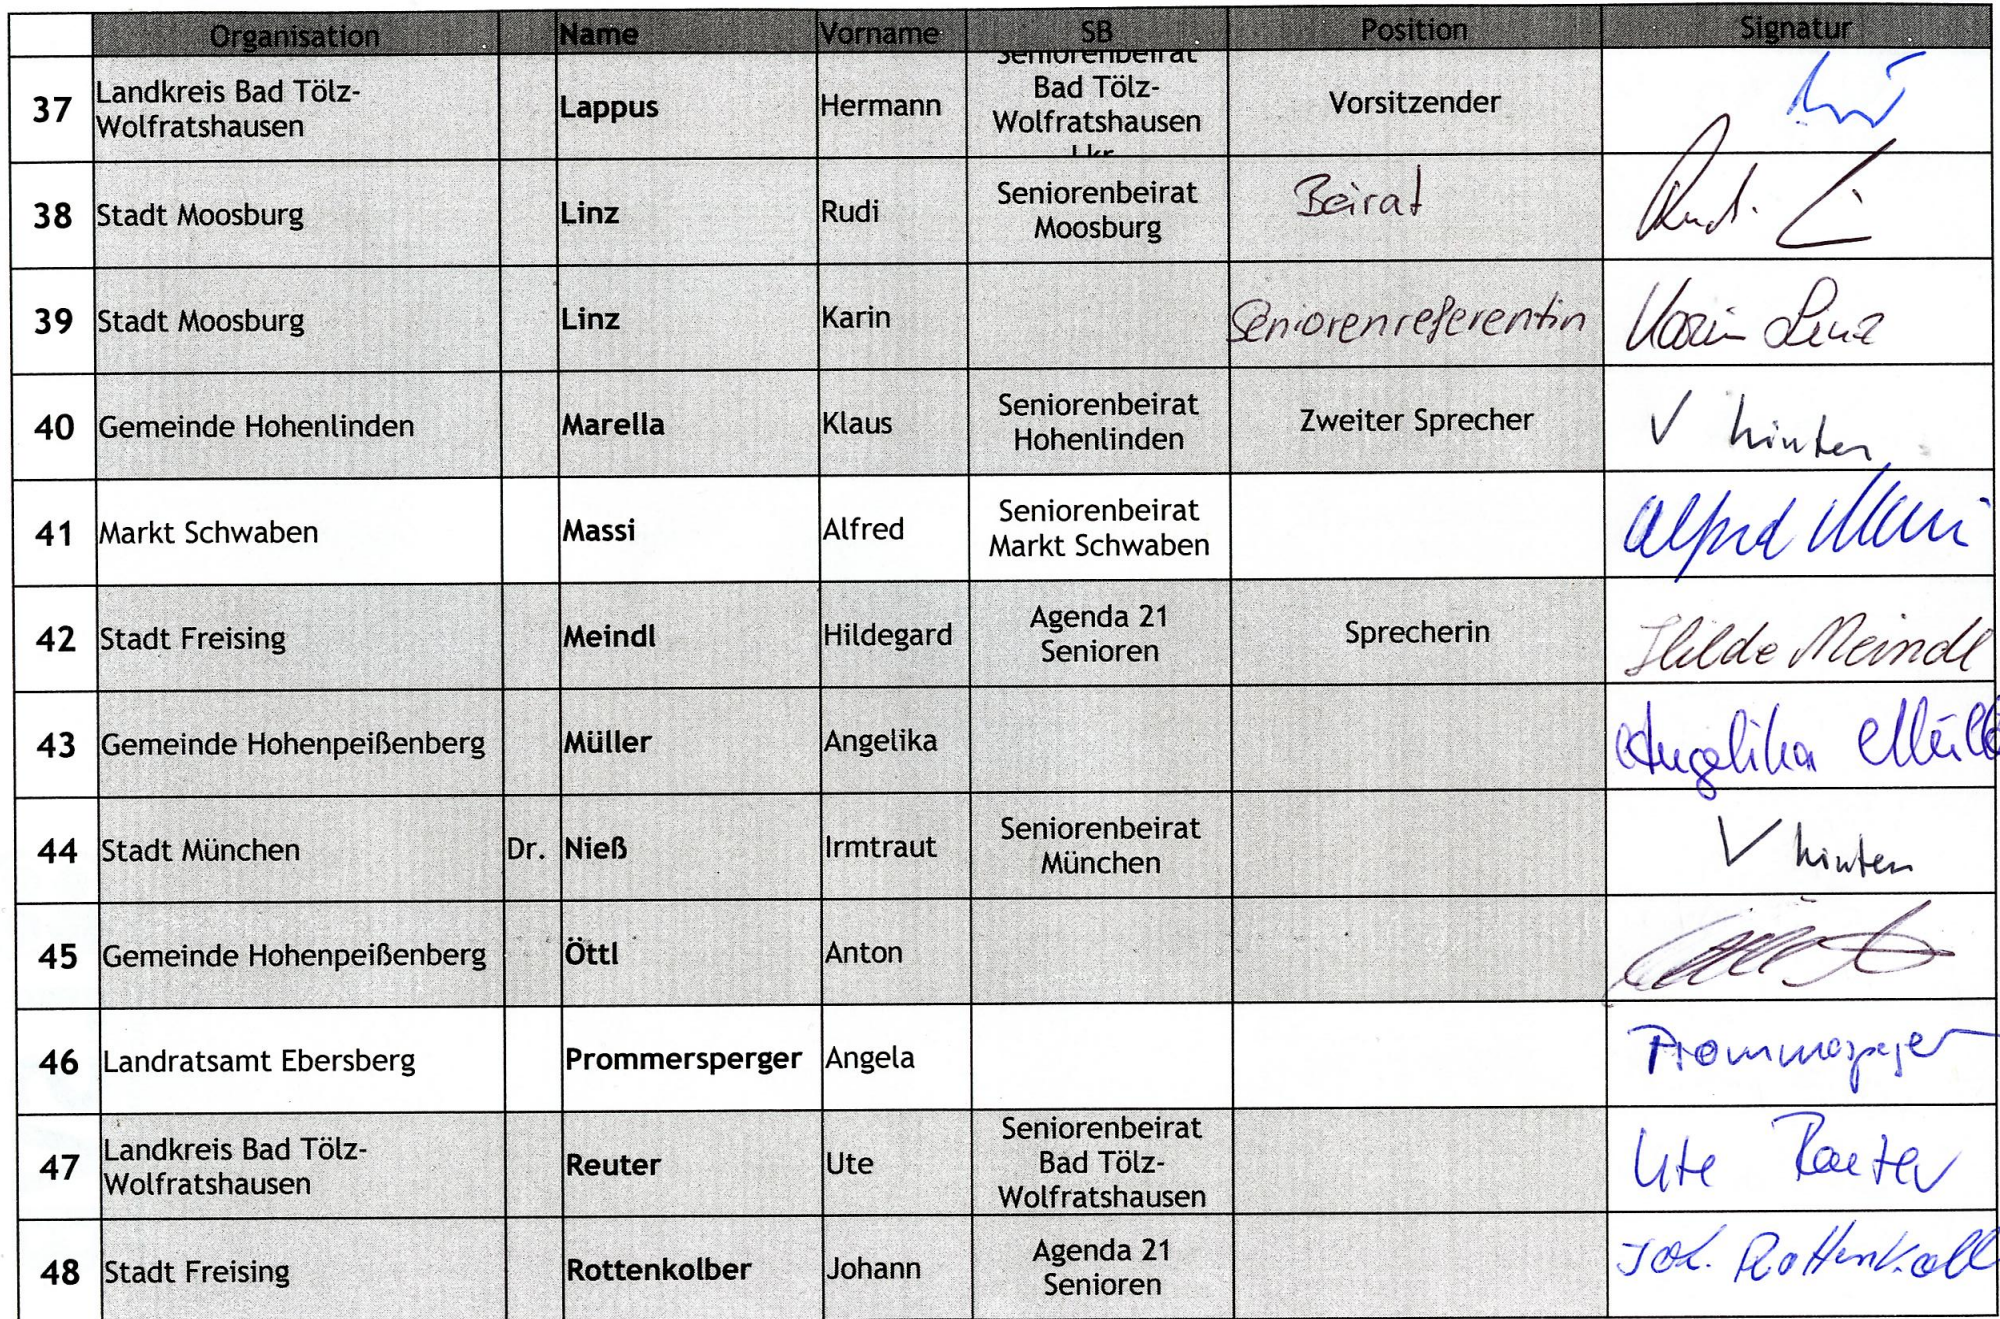 Organisation Name Vorname SB Position Signatur
37 Landkreis Bad Tölz-
Wolfratshausen Lappus Hermann Seniorenbeirat
Bad Tölz-
Wolfratshausen
Lkr Vorsitzender
38 Stadt Moosburg Linz Rudi Seniorenbeirat
Moosburg Beirat Rudi
39 Stadt Moosburg Linz Karin Seniorenreferentin Karin Linz
40 Gemeinde Hohenlinden Marella Klaus Seniorenbeirat
Hohenlinden Zweiter Sprecher V hinten
41 Markt Schwaben Massi Alfred Seniorenbeirat
Markt Schwaben Alfred Massi
42 Stadt Freising Meindl Hildegard Agenda 21
Senioren Sprecherin Hilde Meindl
43 Gemeinde Hohenpeißenberg Müller Angelika Angelika Müll
44 Stadt München Dr. Nieß Irmtraut Seniorenbeirat
München V hinten
45 Gemeinde Hohenpeißenberg Öttl Anton
46 Landratsamt Ebersberg Prommersperger Angela Prommersperger
47 Landkreis Bad Tölz-
Wolfratshausen Reuter Ute Seniorenbeirat
Bad Tölz-
Wolfratshausen Ute Reuter
48 Stadt Freising Rottenkolber Johann Agenda 21
Senioren Joh. Rottenkolb